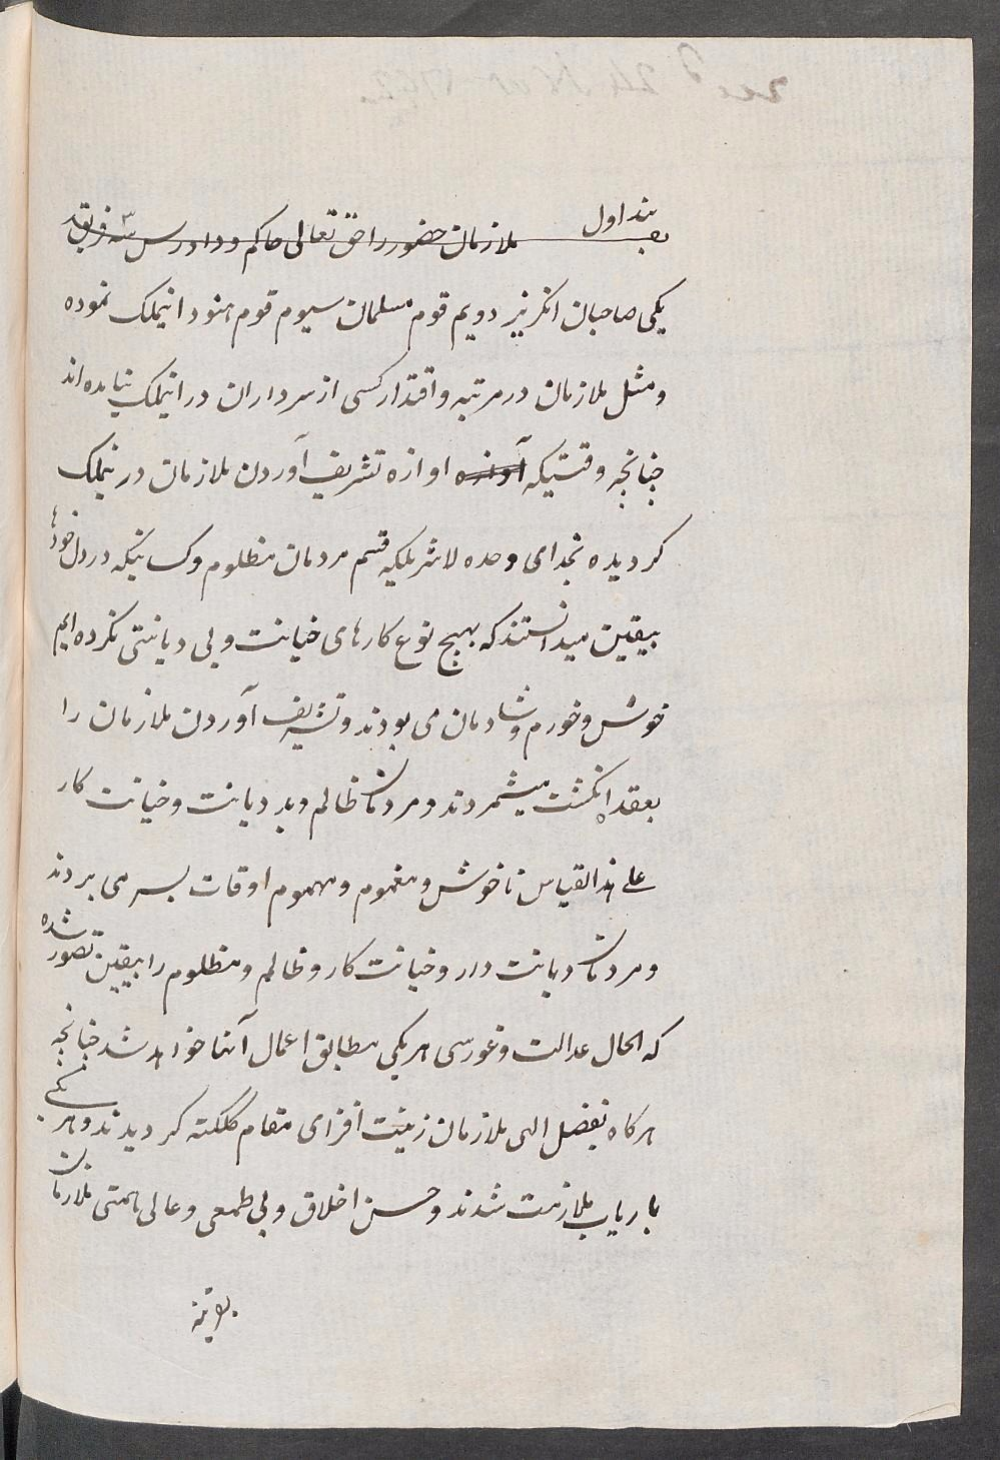 بند اول
ملازمان حضور را حق تعالی حاکم و دادرس سه ۳ فریق
یکی صاحبان انگریز دویم قوم مسلمان سیوم قوم هنود اینملک نموده
و مثل ملازمان در مرتبه و اقتدار کسی از سرداران در اینملک نیامده اند
چنانچه وقتیکه آوازه اوازه تشریف آوردن ملازمان درینملک
کردیده بخدای وحده لاشریک قسم مردمان مظلوم وکسانیکه در دل خودها
بیقین میدانستند که بهیچ نوع کارهای خیانت و بی دیانتی نکرده ایم
خوش و خورم و شادمان می بودند و تشریف آوردن ملازمان را
بعقد انگشت میشمردند و مردمان ظالم و بد دیانت و خیانت کار
علی هذا القیاس ناخوش و مغموم و مهموم اوقات بسر می بردند
و مردمان دیانت دار و خیانت کار و ظالم و مظلوم را بیقین تصور شده
که الحال عدالت و غوررسی هر یکی مطابق اعمال آنها خواهد شد چنانچه
هرکاه بفضل الهی ملازمان زینت افزای مقام کلکته کردیدند و هر یکی
باریاب ملازمت شدند و حسن اخلاق و بی طمعی و عالی همتی ملازمان